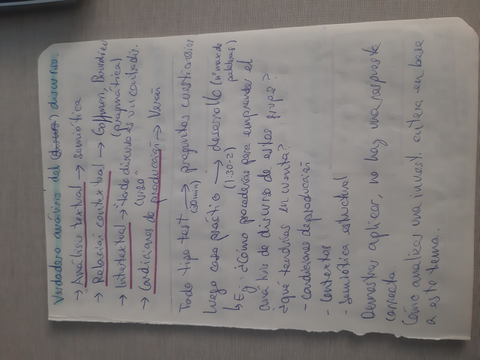 Verdadero análisis del discurso:
→ Análisis textual → semiótica
→ Relación contextual → Goffman, Bourdieu
(pragmática)
→ Intertextual → "todo discurso es un contradis-
curso"
→ Condiciones de producción → Verón
Todo tipo test → preguntas cuestionarios
(30min)
Luego caso práctico → desarrollo (nº max de
(1:30-2) palabras)
↳ Ej: ¿Cómo procederías para emprender el
análisis de discurso de estos grupos?
¿qué tendrías en cuenta?
- Condiciones de producción
- Contextos
- Semiótica estructural
Demostrar aplicar, no hay una respuesta
correcta
Cómo analizas una invest. entera en base
a este tema.